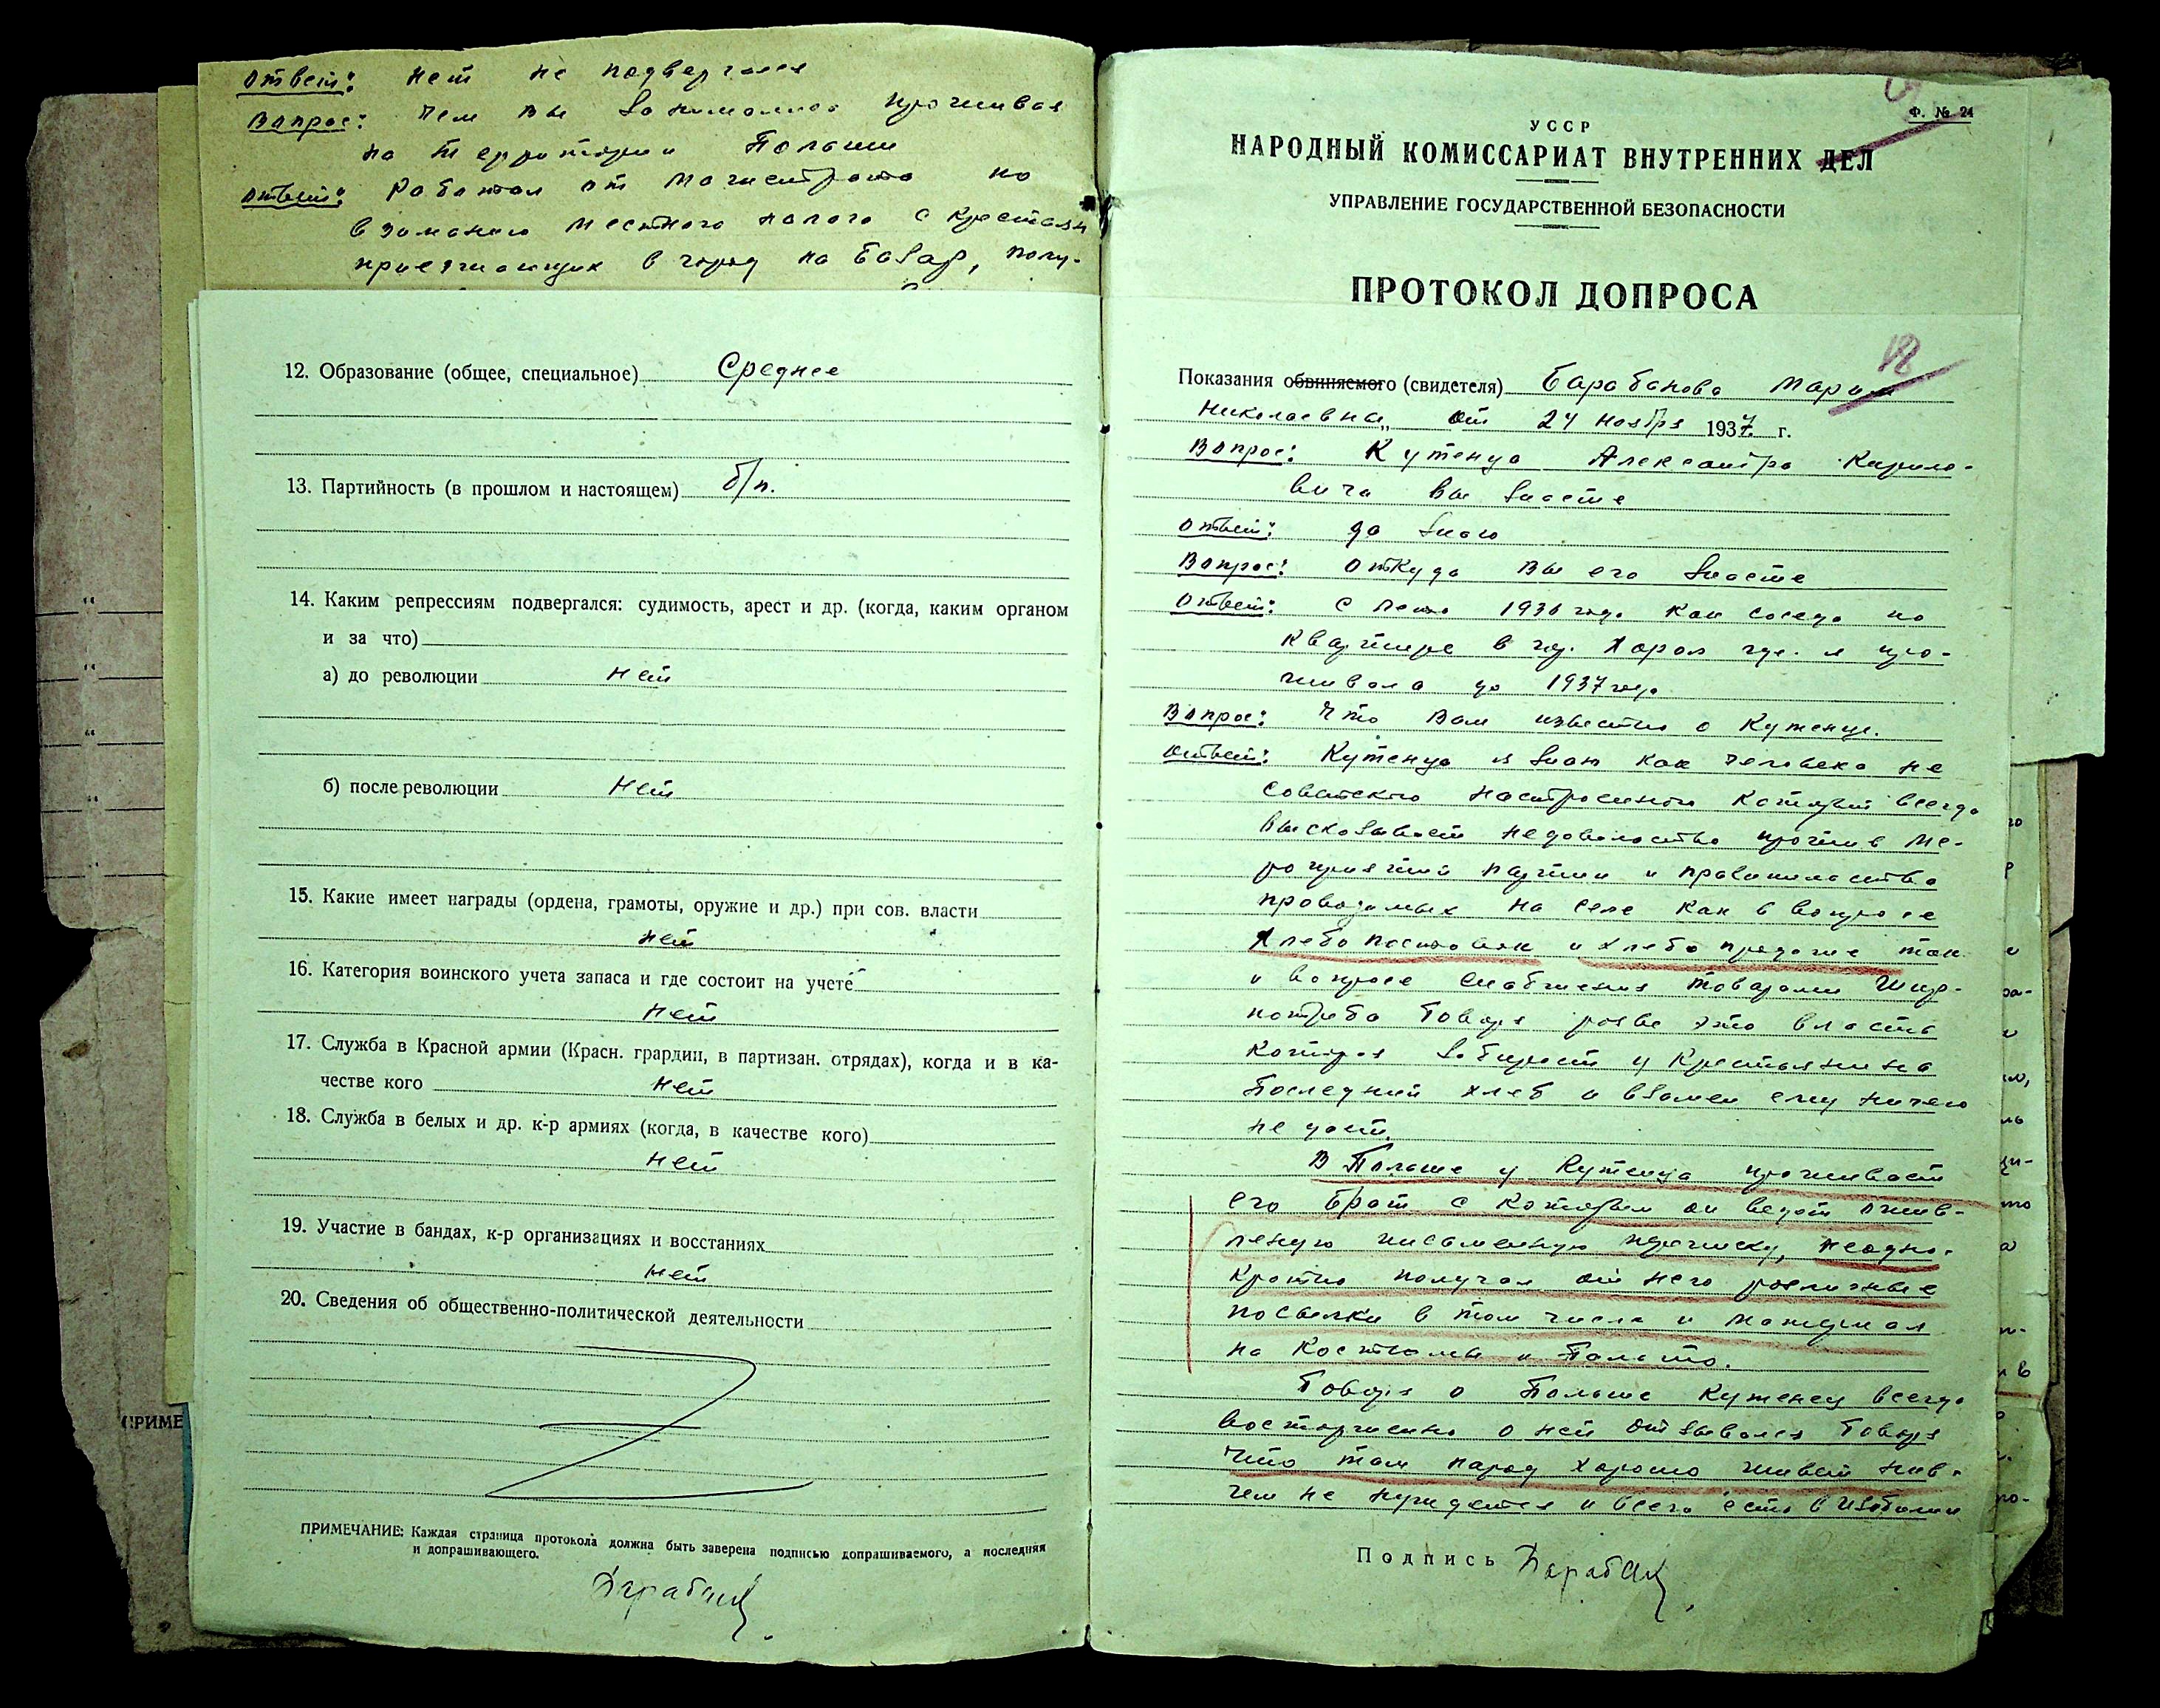 Ответ: Нет не подвергался
Вопрос: Чем вы занимались проживая
на территории Польши
Ответ: Работал от магистрата по
взиманию местного налога с крестьян
приезжающих в город на базар, полу-
12. Образование (общее, специальное) Среднее
13. Партийность (в прошлом и настоящем) б/п.
14. Каким репрессиям подвергался: судимость, арест и др. (когда, каким органом
и за что)
а) до революции нет
б) после революции Нет
15. Какие имеет награды (ордена, грамоты, оружие и др.) при сов. власти
нет
16. Категория воинского учета запаса и где состоит на учете
Нет
17. Служба в Красной армии (Красн. грардии, в партизан. отрядах), когда и в ка-
честве кого нет
18. Служба в белых и др. к-р армиях (когда, в качестве кого)
нет
19. Участие в бандах, к-р организациях и восстаниях
нет
20. Сведения об общественно-политической деятельности
ПРИМЕЧАНИЕ: Каждая страница протокола должна быть заверена подписью допрашиваемого, а последняя
и допрашивающего.
ПРИМЕ
Ф. № 24
УССР
НАРОДНЫЙ КОМИССАРИАТ ВНУТРЕННИХ ДЕЛ
УПРАВЛЕНИЕ ГОСУДАРСТВЕННОЙ БЕЗОПАСНОСТИ
ПРОТОКОЛ ДОПРОСА
Показания обвиняемого (свидетеля) Барабанова Мария
Николаевна от 24 ноября 1937 г.
Вопрос: Кутенца Александра Кирило-
вича вы знаете
Ответ: да знаю
Вопрос: Откуда вы его знаете
Ответ: С лета 1936 года как соседа по
квартире в гор. Хорол где я про-
живала до 1937 года
Вопрос: Что вам известно о Кутенце.
Ответ: Кутенца я знаю как человека не
советского настроенного который всегда
высказывает недовольство против ме-
роприятий партии и правительства
проводимых на селе как в вопросе
хлебопоставок и хлебопродаже так
и вопросе снабжения товарами шир-
потреба говоря разве это власть
которая забирает у крестьянина
последний хлеб и взамен ему ничего
не дает.
В Польше у Кутенца проживает
его брат с которым он ведет ожив-
ленную письменную переписку, неодно-
кратно получал от него различные
посылки в том числе и материал
на костюмы и пальто.
Говоря о Польше Кутенец всегда
восторженно о ней отзывался говоря
что там народ хорошо живет нив-
чем не нуждается и всего есть в изобилии
Подпись Барабан